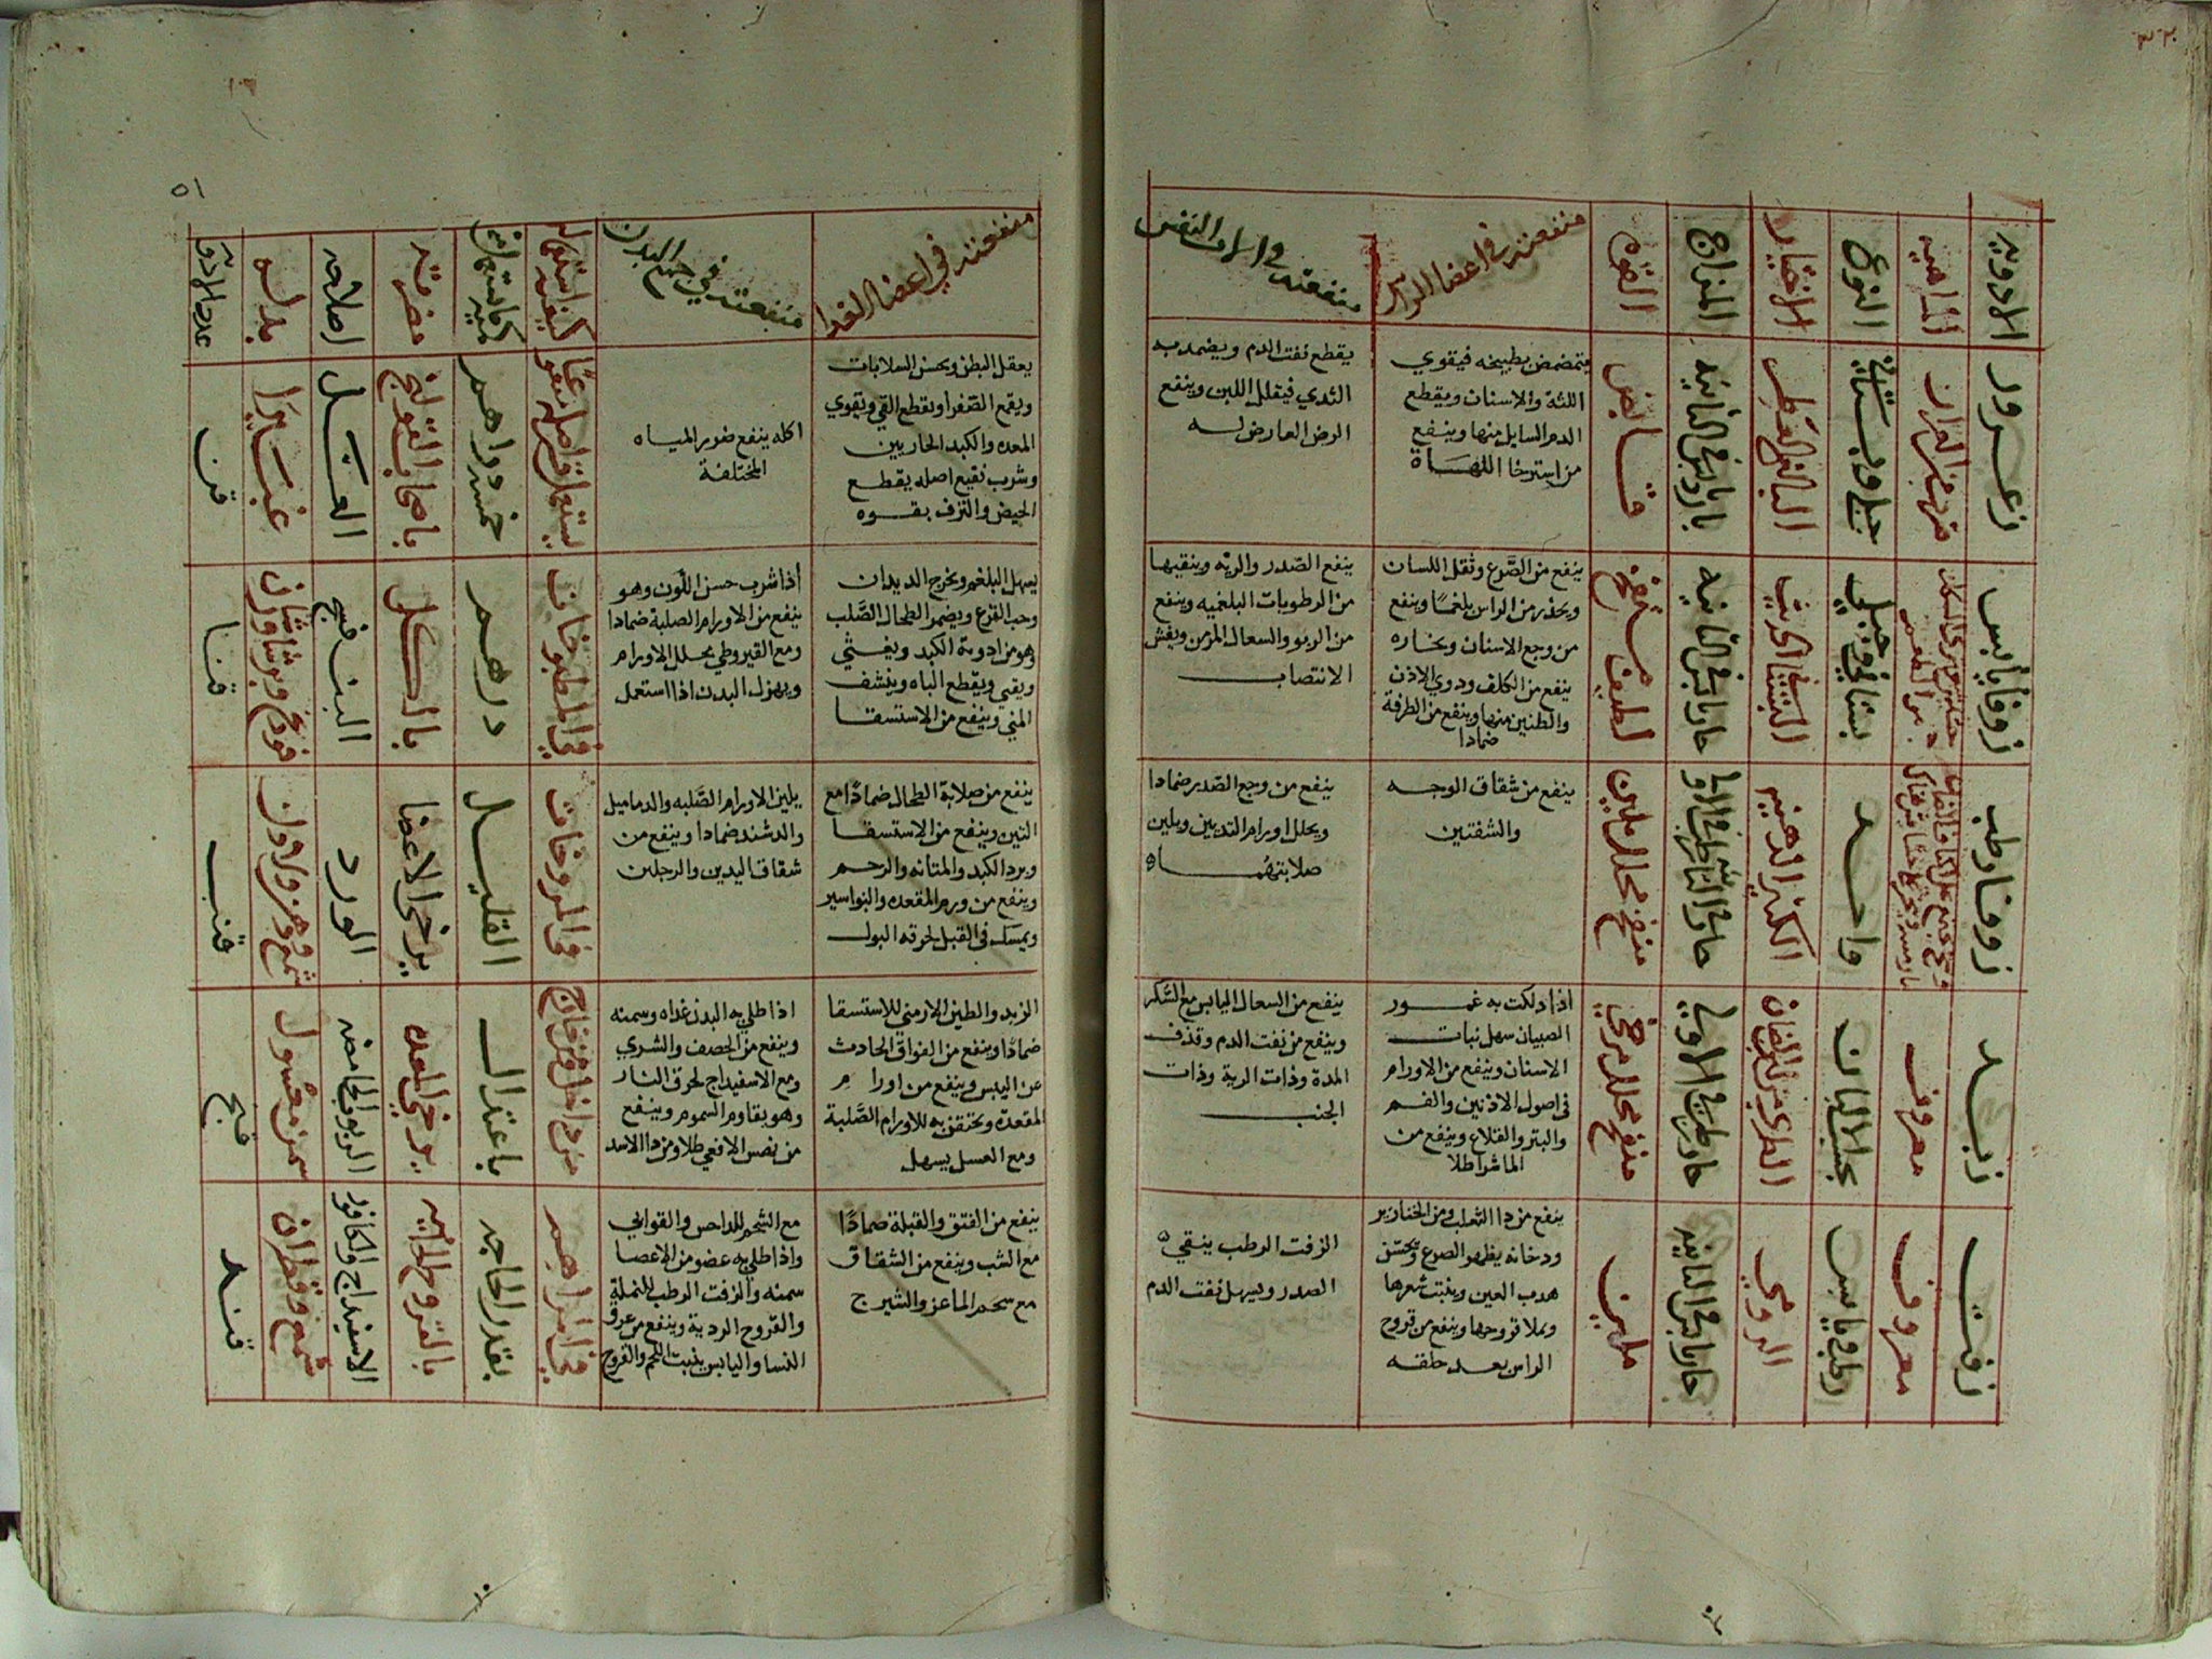 الادوية
الماهية
النوع
الاختيار
المزاج
القوه
منفعته في اعضا الراس
منفعته في الات النفس
زعرور
جبلي وبستاني
قابض
يتمضمض بطبيخه فيقوي
اللثة والاسنان ويقطع
الدم السايل منها وينفع
من استرخا اللهاة
يقطع نفث الدم ويضمد به
الثدي فيقلل اللبن وينفع
الرض العارض له
زوفا يابس
بستاني وجبلي
حار يابس في الثانية
ينفع من الصرع وثقل اللسان
ويحذر من الراس بلغما وينفع
من وجع الاسنان وبخاره
ينفع من الكلف ودوي الاذن
والطنين منها وينفع من الطرفة
ضمادا
ينفع الصدر والرية وينقيها
من الرطوبات البلغميه وينفع
من الربو والسعال المزمن ونفس
الانتصاب
زوفا رطب
واحد
الكثير الدهنيه
منضج محلل ملين
ينفع من شقاق الوجه
والشفتين
ينفع من وجع الصدر ضمادا
ويحلل اورام الثديين ويلين
صلابتهما
زبد
معروف
بحسب الالبان
الطري من لبن الضان
حار رطب في الاولي
منضج محلل مرخي
اذا دلكت به عمور
الصبيان سهل نبات
الاسنان وينفع من الاورام
في اصول الاذنين والفم
والبثر والقلاع وينفع من
الماشرا طلا
ينفع من السعال اليابس مع السكر
وينفع من نفث الدم وقذف
المدة وذات الرية وذات
الجنب
زفت
معروف
رطب ويابس
الرومي
حار يابس في الثانيه
ملين
ينفع من دا الثعلب ومن الخنازير
ودخانه يظهر الصرع ويحسن
هدب العين وينبت شعرها
ويملا قروحها وينفع من قروح
الراس بعد حلقه
الزفت الرطب ينقي
الصدر ويسهل نفث الدم
٥١
منفعته في اعضا الغدا
منفعته في جميع البدن
كيفية استعماله
كمية ما يستعمل منه
مضرته
اصلاحه
بدله
عدد الادوية
يعقل البطن ويحسن السلابات
ويقمع الصفرا ويقطع القي ويقوي
المعده والكبد الحاريين
وشرب نقيع اصله يقطع
الحيض والنزف بقوه
اكله ينفع ضرر المياه
المختلفة
خمسة دراهم
باصحاب القولنج
العسل
غبيرا
قن
يسهل البلغم ويخرج الديدان
وحب القرع ويضمر الطحال الصلب
وهو من ادوية الكبد ويغثي
ويقي ويقطع الباه وينشف
المني وينفع من الاستسقا
اذا شرب حسن اللون وهو
ينفع من الاورام الصلبة ضمادا
ومع القيروطي يحلل الاورام
ويهزل البدن اذا استعمل
في المطبوخات
درهم
بالكلي
البنفسج
قنا
ينفع من صلابة الطحال ضمادا مع
التين وينفع من الاستسقا
وبرد الكبد والمثانه والرحم
وينفع من ورم المقعده والنواسير
ويمسك في القبل لحرقه البول
يلين الاورام الصلبه والدماميل
والدشبد ضمادا وينفع من
شقاق اليدين والرجلين
في المروخات
القليل
يرخي الاعضا
الورد
قنب
الزبد والطين الارمني للاستسقا
ضمادا وينفع من الفواق الحادث
عن اليبس وينفع من اورام
المقعدة ويحتقن به للاورام الصلبة
ومع العسل يسهل
اذا طلي به البدن غداه وسمنه
وينفع من الحصف والشري
ومع الاسفيداج لحرق النار
وهو يقاوم السموم وينفع
من نهس الافعي طلا ومن دا الاسد
من داخل ومن خارج
باعتدال
يرخي المعده
الربوب الحامضه
سمن مغسول
قنج
ينفع من الفتق والقيلة ضمادا
مع الشب وينفع من الشقاق
مع شحم الماعز والشيرج
مع الشحم للداحس والقوابي
واذا طلي به عضو من الاعضا
سمنه والزفت الرطب للنملة
والقروح الردية وينفع من عرق
النسا واليابس ينبت اللحم والقروح
في المراهم
بقدر الحاجه
بالقروح الحاره
الاسفيداج والكافور
شمع وقطران
قند